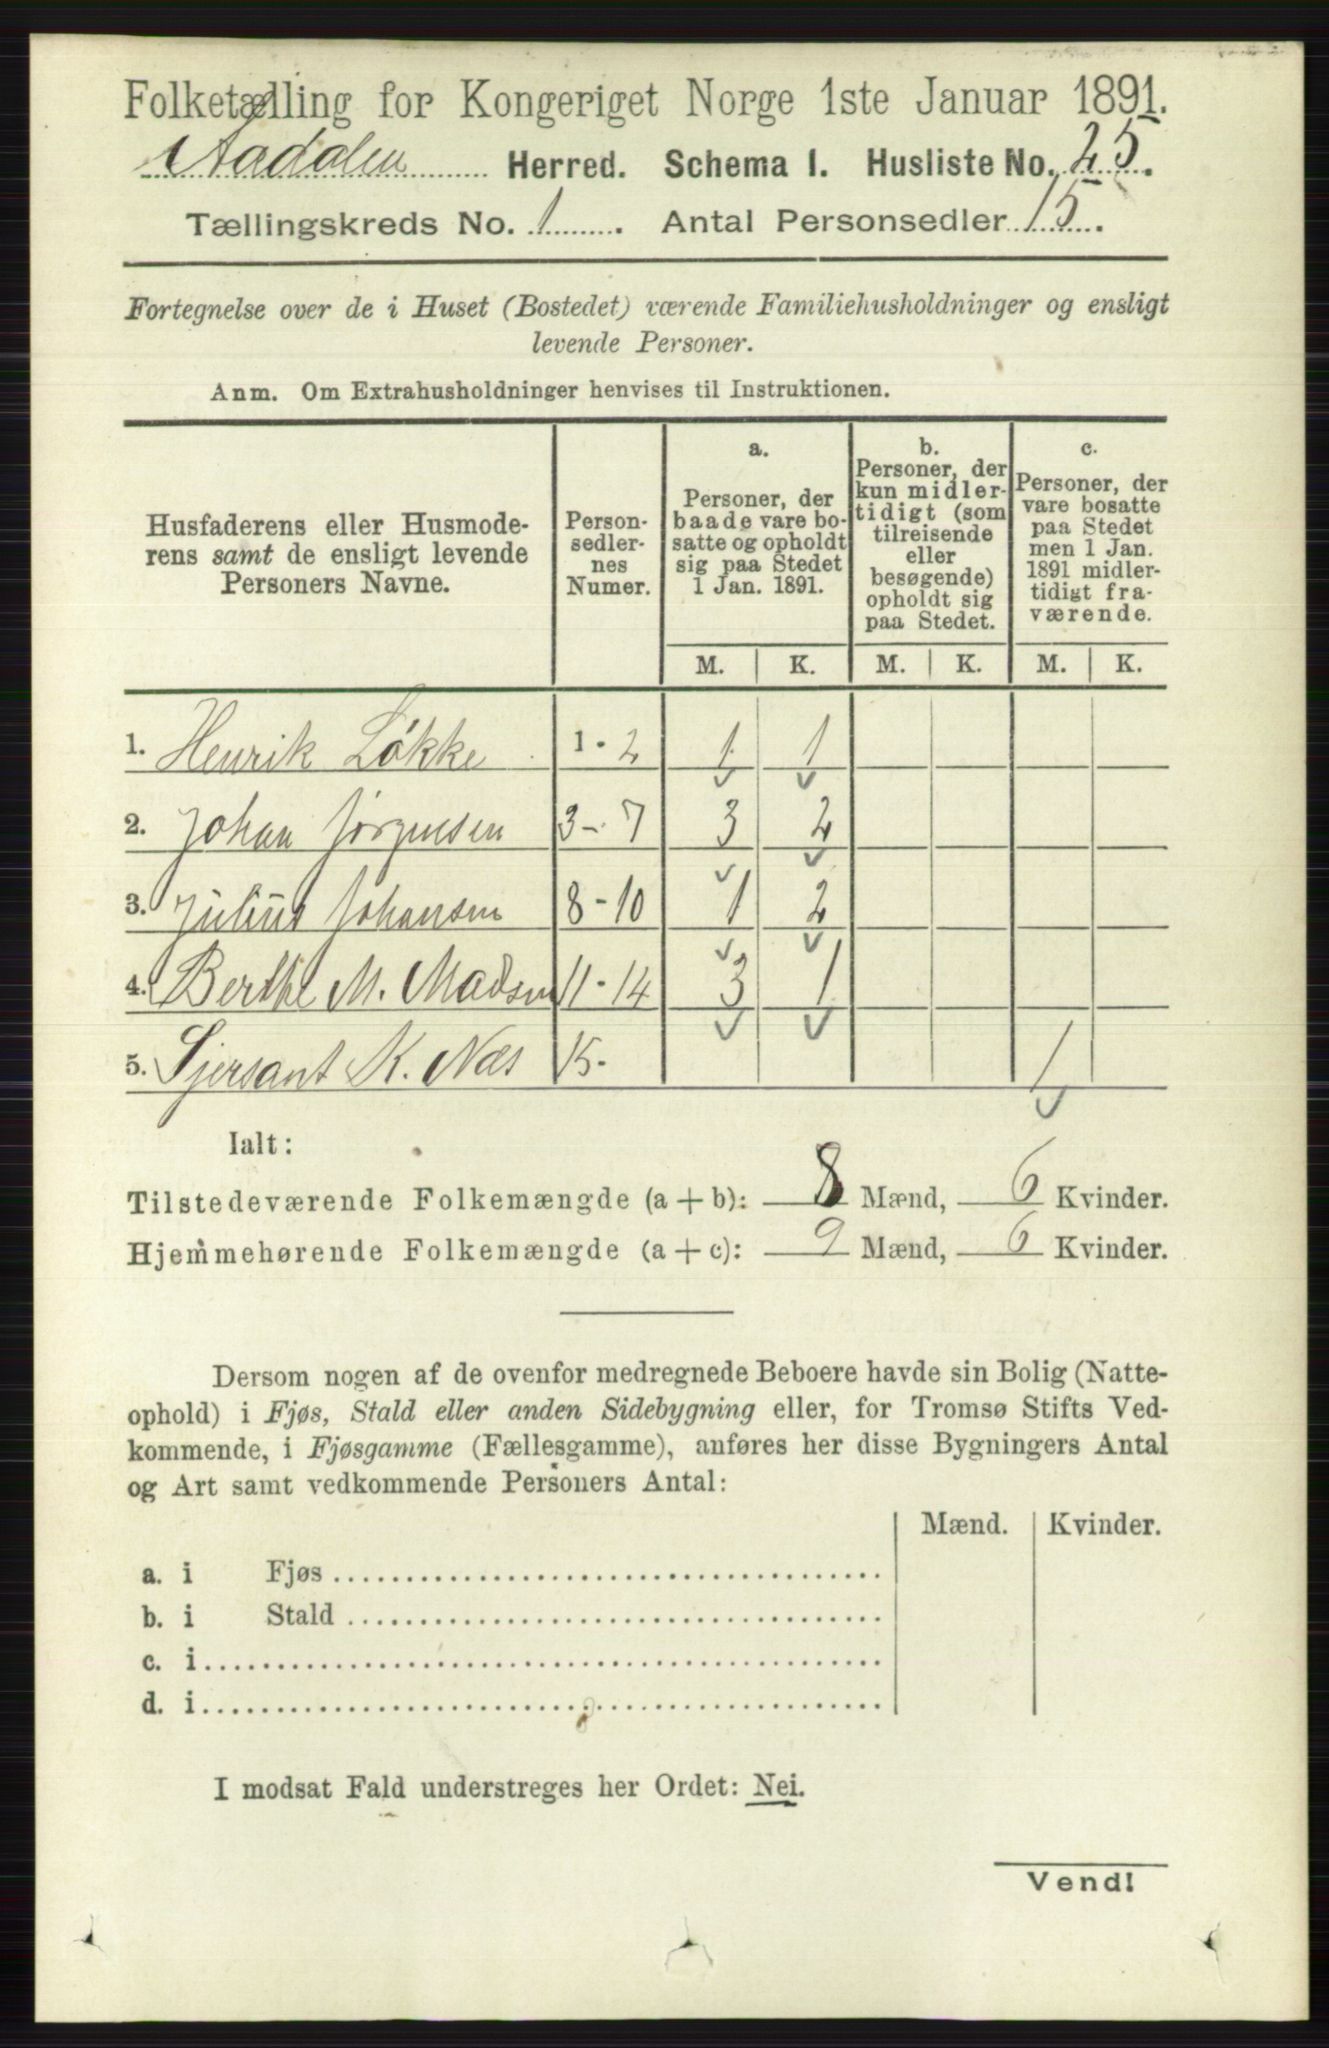 Folketælling for Kongeriget Norge 1ste Januar 1891.
Aadalen Herred. Schema I. Husliste No. 25.
Tællingskreds No. 1. Antal Personsedler 15.
Fortegnelse over de i Huset (Bostedet) værende Familiehusholdninger og ensligt
levende Personer.
Anm. Om Extrahusholdninger henvises til Instruktionen.
Husfaderens eller Husmode-
rens samt de ensligt levende
Personers Navne.
Person-
sedler-
nes
Numer.
a.
Personer, der
baade vare bo-
satte og opholdt
sig paa Stedet
1 Jan. 1891.
b.
Personer, der
kun midler-
tidigt (som
tilreisende
eller
besøgende)
opholdt sig
paa Stedet.
c.
Personer, der
vare bosatte
paa Stedet
men 1 Jan.
1891 midler-
tidigt fra-
værende.
M. K. M. K. M. K.
1. Henrik Løkke 1-2 1 1
2. Johan Jørgensen 3-7 3 2
3. Julius Johansen 8-10 1 2
4. Berthe M. Madsen 11-14 3 1
5. Sjersant K. Næs 15- 1
Ialt:
Tilstedeværende Folkemængde (a+b): 8 Mænd, 6 Kvinder.
Hjemmehørende Folkemængde (a+c): 9 Mænd, 6 Kvinder.
Dersom nogen af de ovenfor medregnede Beboere havde sin Bolig (Natte-
ophold) i Fjøs, Stald eller anden Sidebygning eller, for Tromsø Stifts Ved-
kommende, i Fjøsgamme (Fællesgamme), anføres her disse Bygningers Antal
og Art samt vedkommende Personers Antal:
Mænd. Kvinder.
a. i Fjøs
b. i Stald
c. i
d. i
I modsat Fald understreges her Ordet: Nei.
Vend!